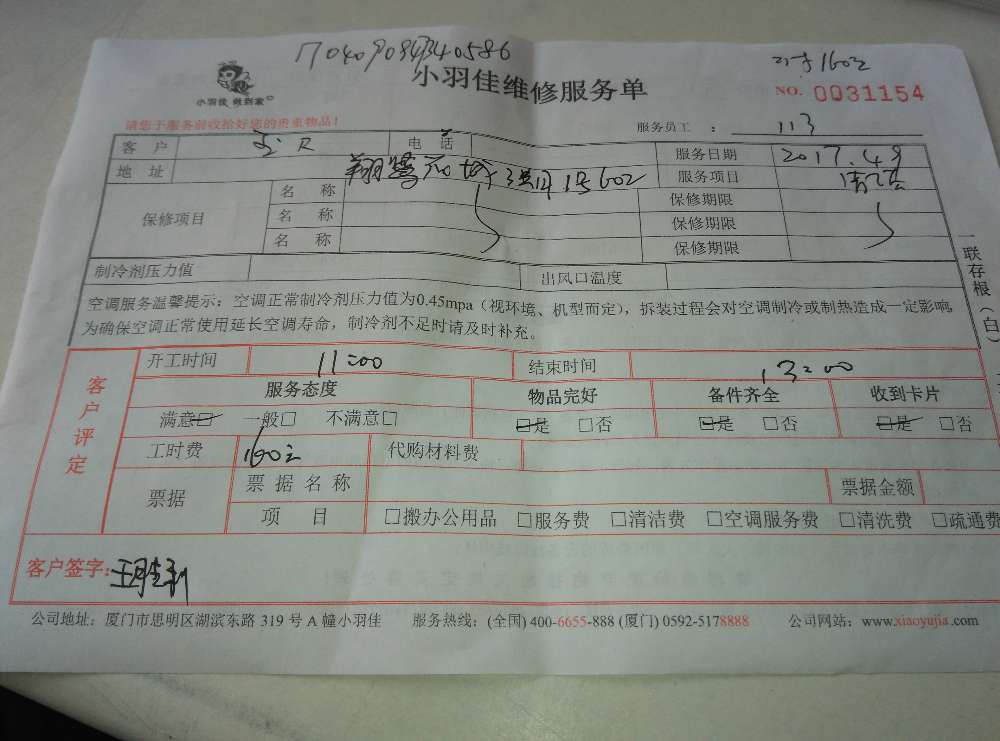 小羽佳 做到家
小羽佳维修服务单
NO. 0031154
请您于服务前收拾好您的贵重物品！
服务员工 ： 113
客 户
电 话
服务日期 2017.4.9
地 址 602
服务项目 清洗
保修项目
名 称
保修期限
名 称
保修期限
名 称
保修期限
制冷剂压力值
出风口温度
空调服务温馨提示：空调正常制冷剂压力值为0.45mpa（视环境、机型而定），拆装过程会对空调制冷或制热造成一定影响，
为确保空调正常使用延长空调寿命，制冷剂不足时请及时补充。
一联存根（白）
客户评定
开工时间 11:00
结束时间 13:00
服务态度 物品完好 备件齐全 收到卡片
满意☑ 一般□ 不满意□ ☑是 □否 ☑是 □否 ☑是 □否
工时费 160元 代购材料费
票据
票 据 名 称
票据金额
项 目 □搬办公用品 □服务费 □清洁费 □空调服务费 □清洗费 □疏通费
客户签字：王胜利
公司地址：厦门市思明区湖滨东路 319 号 A 幢小羽佳 服务热线：(全国) 400-6655-888 (厦门) 0592-5178888 公司网站：www.xiaoyujia.com